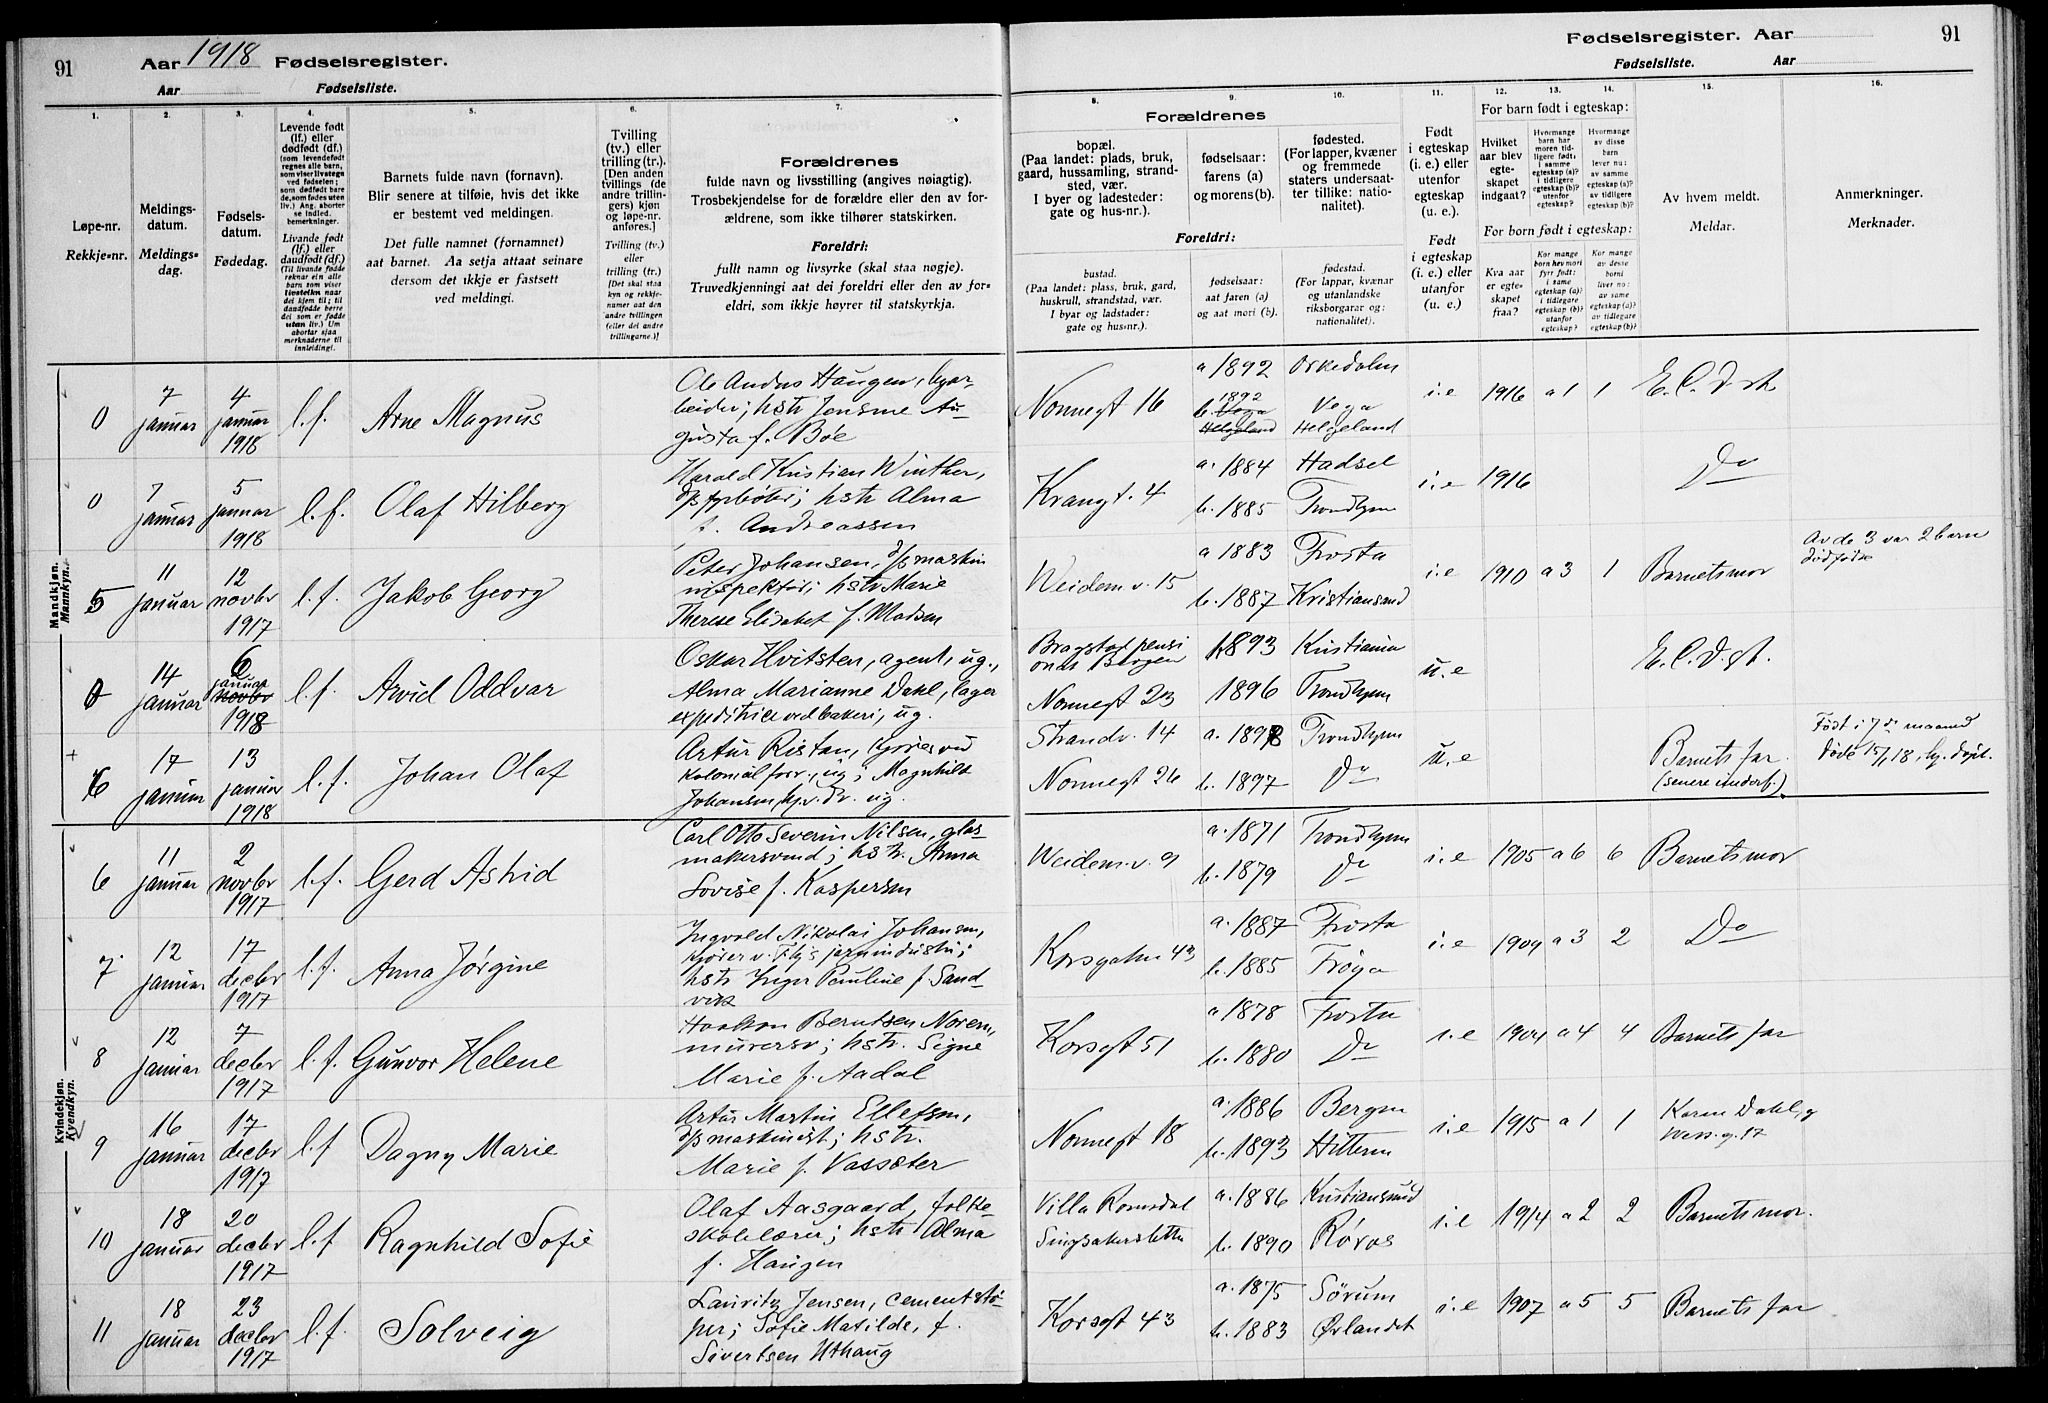 91
Aar 1918 Fødselsregister.
Aar Fødselsliste.
1.
Løpe-nr.
Rekkje-nr.
2.
Meldings-
datum.
Meldings-
dag.
3.
Fødsels-
datum.
Fødedag.
4.
Levende født
(lf.) eller
dødfødt (df.)
(som levendefødt
regnes alle barn,
som viser livstegn
ved fødselen;
som dødfødt bare
de, som fødes uten
liv.) Ang. aborter
se indled.
bemerkninger.
Livande født
(lf.) eller
daudfødt (df.)
(Til livande fødde
reknar ein alle
barn som viser
livsteikn naar
dei kjem til; til
daudfødde berre
dei som er fødde
utan liv.) Um
abortar sjaa
merknaderne til
innleidingi.
5.
Barnets fulde navn (fornavn).
Blir senere at tilføie, hvis det ikke
er bestemt ved meldingen.
Det fulle namnet (fornamnet)
aat barnet. Aa setja attaat seinare
dersom det ikkje er fastsett
ved meldingi.
6.
Tvilling
(tv.) eller
trilling (tr.).
[Den anden
tvillings (de
andre trillin-
gers) kjøn
og løpe-nr.
anføres.]
Tvilling (tv.)
eller
trilling (tr.)
[Det skal staa
kyn og rekkje-
numer aat den
andre tvillingen
(eller dei andre
trillingarne.)]
7.
Forældrenes
fulde navn og livsstilling (angives nøiagtig).
Trosbekjendelse for de forældre eller den av for-
ældrene, som ikke tilhører statskirken.
Foreldri:
fullt namn og livsyrke (skal staa nøgje).
Truvedkjenningi aat dei foreldri eller den av for-
eldri, som ikkje høyrer til statskyrkja.
Fødselsregister. Aar
91
Fødselsliste. Aar
Forældrenes
8.
bopæl.
(Paa landet: plads, bruk,
gaard, hussamling, strand-
sted, vær.
I byer og ladesteder:
gate og hus-nr.).
Foreldri:
bustad.
(Paa landet: plass, bruk, gard,
huskrull, strandstad, vær.
I byar og ladstader:
gate og hus-nr.).
9.
fødselsaar:
farens (a)
og morens (b).
fødselsaar:
aat faren (a)
og aat mori (b).
10.
fødested.
(For lapper, kvæner
og fremmede
staters undersaat-
ter tillike: natio-
nalitet).
fødestad.
(For lappar, kvænar
og utanlandske
riksborgarar og:
nationalitet).
11.
Født
i egteskap
(i. e.) eller
utenfor
egteskap
(u. e.).
Født
i egteskap
(i. e.) eller
utanfor
(u. e.)
For barn født i egteskap:
12.
Hvilket
aar blev
egte-
skapet
indgaat?
13.
Hvormange
barn har
moren tid-
ligere født:
i samme
egteskap (a)?
i tidligere
egteskap (b)?
utenfor
egteskap?
14.
Hvormange
av disse
barn
lever nu:
av samme
egteskap (a)?
av tidligere
egteskap (b)?
For born født i egteskap:
Kva aar
er egte-
skapet
fraa?
Kor mange
born hev mori
fyrr født:
i same
egteskap (a)?
i tidlegare
egteskap (b)?
utanfor
egteskap?
Kor mange
av desse
borni
liver no:
av same
egteskap (a)?
av tidlegare
egteskap (b)?
15.
Av hvem meldt.
Meldar.
16.
Anmerkninger.
Merknader.
Mandkjøn.
Mannkyn.
0 7 januar 4 januar 1918 l.f. Arne Magnus
Ole Andus Haugen, byar-
beider; hstr Jensine Au-
gusta f. Bøe
Nonnegt 16 a 1892 Orkedalen i.e 1916 a 1 1 E.C.D.st.
1892
b. Vega Vega
Helgeland Helgeland
0 7 januar 5 januar 1918 l.f. Olaf Hilberg
Harald Kristian Winther,
d/s fyrbøter; hstr Alma
f. Andreassen
Krangt. 4 a. 1884 Hadsel i.e 1916 Do
b. 1885 Trondhjem
5 11 januar 12 novbr 1917 l.f. Jakob Georg
Peter Johansen, d/s maskin
inspektør; hstr Marie
Therese Elisabet f. Madsen
Weidem. v. 15 a 1883 Frosta i.e 1910 a 3 1 Barnets mor
Av de 3 var 2 barn
dødfødte
b. 1887 Kristiansand
0 14 januar 6 januar novbr 1918 l.f. Arvid Oddvar
Oskar Hvitsten, agent, ug.,
Alma Marianne Dahl, lager
expeditrice ved bakeri, ug.
Bragstad pensi
onat Bergen 1893 Kristiania u.e E.C.D.st.
Nonnegt 23 1896 Trondhjem
+
6 17 januar 13 januar 1918 l.f. Johan Olaf
Artur Ristan, kjører ved
kolonialforr., ug; Magnhild
Johansen, hjv. Tr. ug.
Strandv. 14 a. 1898 Trondhjem u.e Barnets far
(senere underf.)
Født i 7de maaned
Døde 15/1 18, hj. døpt.
Nonnegt 26 b. 1897 Do
Kvindekjøn.
Kvendkyn.
6 11 januar 2 novbr 1917 l.f. Gerd Astrid
Carl Otto Severin Nilsen, glas-
makersvend; hstr. Anna
Lovise f. Kaspersen
Weidem. v. 9 a. 1871 Trondhjem i.e 1905 a 6 6 Barnets mor
b. 1879 Do
7 12 januar 17 decbr 1917 l.f. Anna Jørgine
Ingvald Nikolai Johansen,
kjører v. jernindustri;
hstr Inger Pauline f. Sand-
vik
Korsgaten 43 a. 1887 Frosta i.e 1909 a 3 2 Do
b. 1885 Frøya
8 12 januar 7 decbr 1917 l.f. Gunvor Helene
Haakon Berntsen Noren,
murersv; hstr. Signe
Marie f. Aadal
Korsgt 51 a 1878 Frosta i.e 1904 a 4 4 Barnets far
b. 1880 Do
9 16 januar 17 decbr 1917 l.f Dagny Marie
Artur Martin Ellefsen,
d/s maskinist; hstr.
Marie f. Vassæter
Nonnegt 18 a. 1886 Bergen i.e 1915 a 1 1 Karen Dahl,
Wess. g. 17
b. 1893 Hitteren
10 18 januar 20 decbr 1917 l.f Ragnhild Sofie
Olaf Aasgaard, folke-
skolelærer; hstr Alma
f. Haugen
Villa Romsdal
Singsakersletta a. 1886 Kristiansund i.e 1914 a 2 2 Barnets mor.
b. 1890 Røros
11 18 januar 23 decbr 1917 l.f. Solveig
Lauritz Jensen, cementstø-
per; Sofie Matilde, f.
Sivertsen Uthaug
Korsgt 43 a. 1875 Sørum i.e 1907 a 5 5 Barnets far
b. 1883 Ørlandet